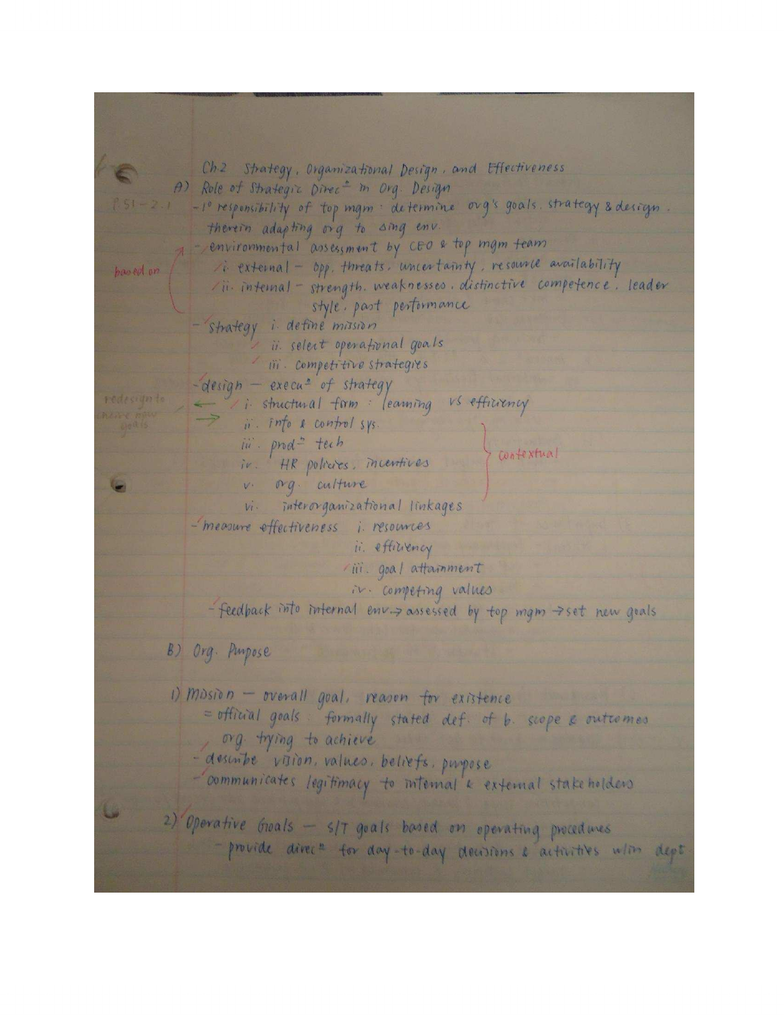 Ch.2 Strategy, Organizational Design, and Effectiveness
A) Role of Strategic Direcⁿ in Org. Design
- 1° responsibility of top mgm: determine org's goals, strategy & design,
therein adapting org to Δing env.
- environmental assessment by CEO & top mgm team
based on
i. external - opp, threats, uncertainty, resource availability
ii. internal - strength, weaknesses, distinctive competence, leader
style, past performance
- strategy i. define mission
ii. select operational goals
iii. competitive strategies
- design - execuⁿ of strategy
redesign to
new
goals
← i. structural form: learning vs efficiency
→ ii. info & control sys.
iii. prodⁿ tech
iv. HR policies, incentives
contextual
v. org. culture
vi. interorganizational linkages
- measure effectiveness i. resources
ii. efficiency
iii. goal attainment
iv. competing values
- feedback into internal env → assessed by top mgm → set new goals
B) Org. Purpose
1) Mission - overall goal, reason for existence
= official goals: formally stated def. of b. scope & outcomes
org. trying to achieve
- describe vision, values, beliefs, purpose
- communicates legitimacy to internal & external stakeholders
2) Operative Goals - S/T goals based on operating procedures
- provide direcⁿ for day-to-day decisions & activities w/in dept